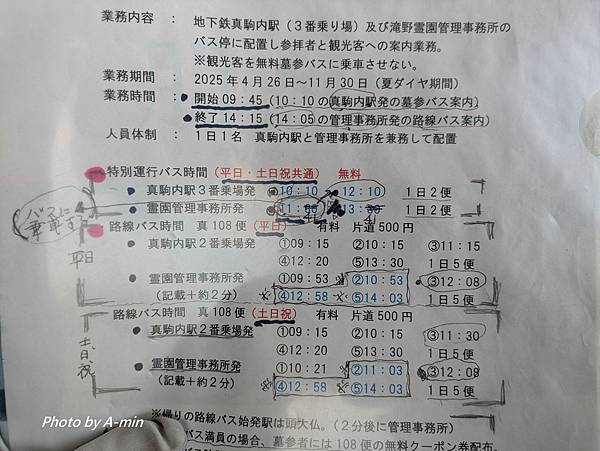 業務内容 ： 地下鉄真駒内駅（３番乗り場）及び滝野霊園管理事務所の
バス停に配置し参拝者と観光客への案内業務。
※観光客を無料墓参バスに乗車させない。
業務期間 ： 2025年4月26日～11月30日（夏ダイヤ期間）
業務時間 ： ●開始09：45（10：10の真駒内駅発の墓参バス案内）
●終了14：15（14：05の管理事務所発の路線バス案内）
人員体制 ： 1日1名 真駒内駅と管理事務所を兼務して配置
特別運行バス時間（平日・土日祝共通） 無料
● 真駒内駅３番乗場発 ●10：10 ●12：10 1日2便
● 霊園管理事務所発 1日2便
路線バス時間 真108便（平日） 有料 片道500円
● 真駒内駅２番乗場発 ①09：15 ②10：15 ③11：15
④12：20 ⑤13：30 1日5便
● 霊園管理事務所発 ①09：53 ②10：53 ③12：08
（記載＋約２分） ④12：58 ⑤14：03 1日5便
平日
路線バス時間 真108便（土日祝） 有料 片道500円
● 真駒内駅２番乗場発 ①09：15 ②10：15 ③11：30
④12：20 ⑤13：30 1日5便
● 霊園管理事務所発 ①10：21 ②11：03 ③12：08
（記載＋約２分） ④12：58 ⑤14：03 1日5便
土、日、祝
※帰りの路線バス始発駅は頭大仏。（２分後に管理事務所）
バス満員の場合、墓参者には108便の無料クーポン券配布。
Photo by A-min